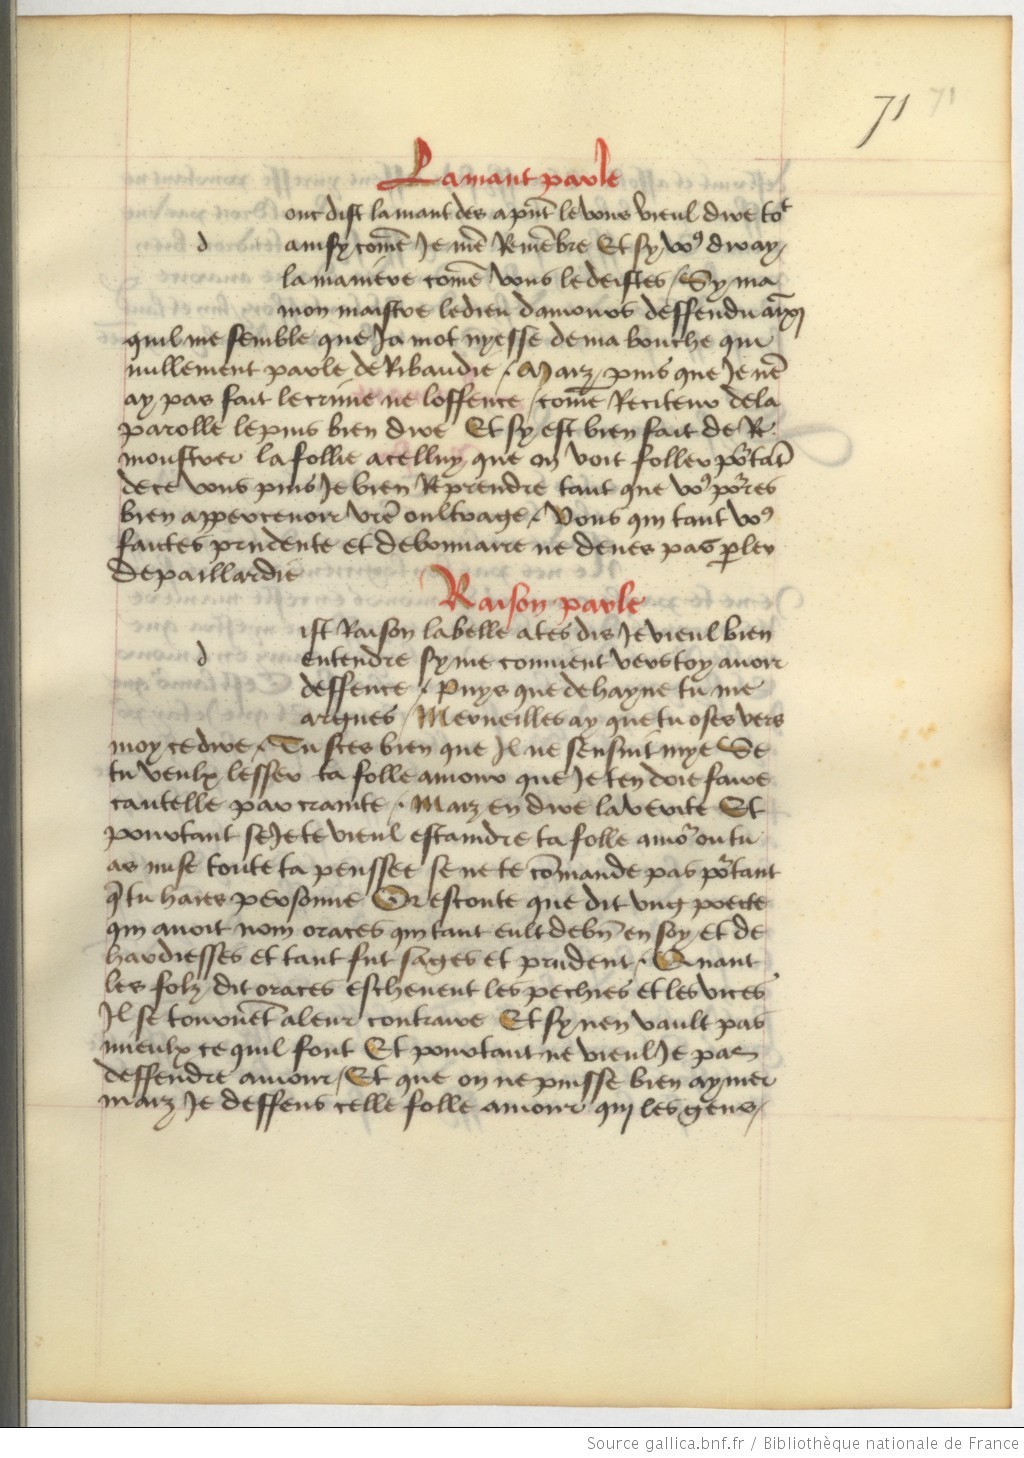 71 71
Lamant parle
onc dist lamant des aṕnt le vous vieul dire tot
d ainsy com̃e Je mẽ Remẽbre Et sy voꝰ diray
la maniere com̃e vous le deistes / Sy ma
mon maistre le dieu damours deffendu
quil me semble que Ja mot nysse de ma bouche qui
nullement parle de Ribaudie / Maiz puis que Je nẽ
ay pas fait le crime ne loffence / com̃e Reciteur de la
parolle le puis bien dire Et sy est bien fait de Re
monstrer la follie a celluy que on voit foller po᷑tãt
de ce vous puis Je bien Reprendre tant que voꝰ po᷑res
bien appercevoir vrẽ oultrage / Vous qui tant voꝰ
faictes prudente et debonnaire ne deves pas ꝑler
de paillardie
Raison parle
ist Raison la belle a tes dis Je vieul bien
d entendre sy me convient vers toy avoir
deffence / Puys que de hayne tu me
argues / Merveilles ay que tu oses vers
moy ce dire / Tu sces bien que Il ne sensuit mye Se
tu veulx lesser ta folle amour que Je ten doie faire
cautelle par crainte / Maiz en dire la verite Et
pourtant se Je te vieul estaindre ta folle amo᷑ ou tu
as mise toute ta penssee se ne te cõmande pas po᷑tant
q̃ tu haies personne Or escoute que dit ung poecte
qui avoit nom oraces qui tant eult de bñ en soy et de
hardiesses et tant fut sages et prudent / Quant
les folz dit oraces eschevent les pechies et les vices
Il se tourñet a leur contraire Et sy nen vault pas
mieulx ce quil font Et pourtant ne vieul Je pas
deffendre amour / Et que on ne puisse bien aymer
maiz Je deffens celle folle amour qui les gens /
Source gallica.bnf.fr / Bibliothèque nationale de France